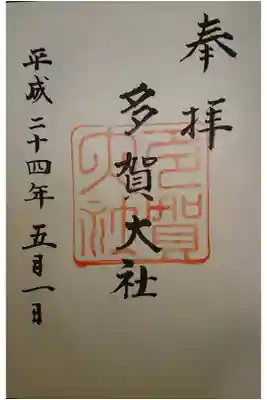 奉拝
多賀大社
平成二十四年五月一日